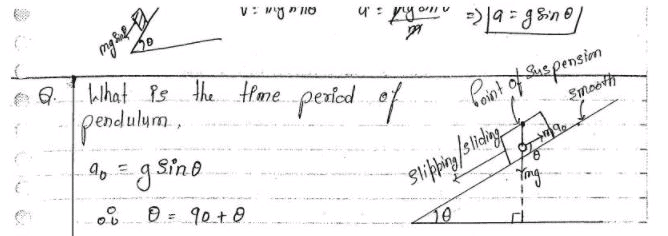 mg sinθ
θ
a = g sinθ
Q. What is the time period of
pendulum,
a₀ = g sinθ
∴ θ = 90 + θ
Point of suspension
smooth
slipping/sliding
ma₀
θ
mg
θ